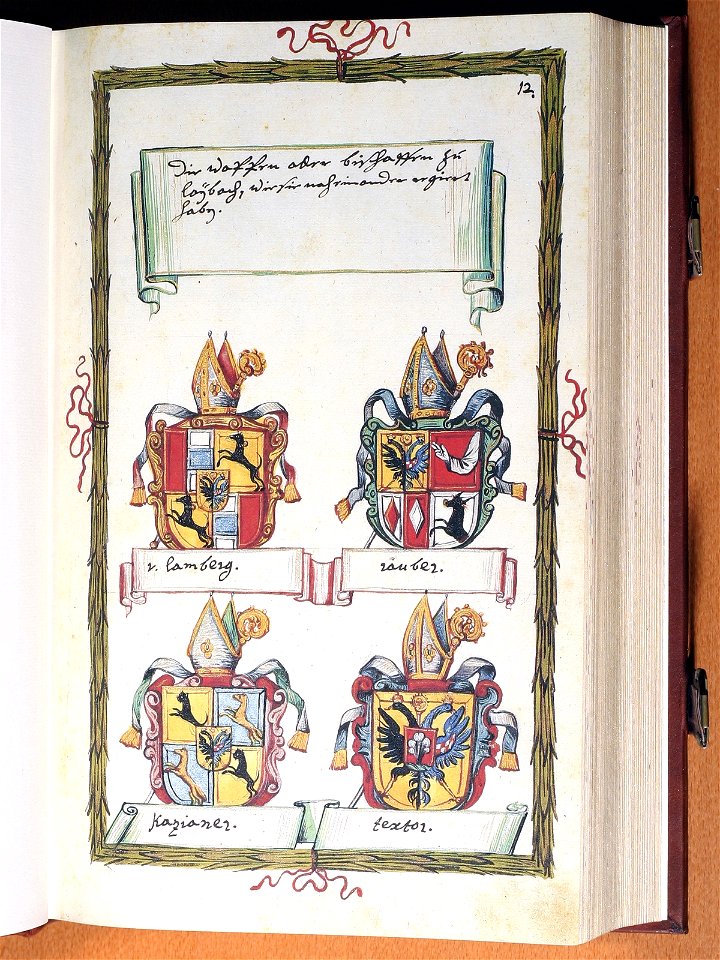 12.
Die waffen oder bischoffen zu
laybach, wie sie nacheinander regiert
haben.
v. lamberg.
rauber.
Kazianer.
textor.